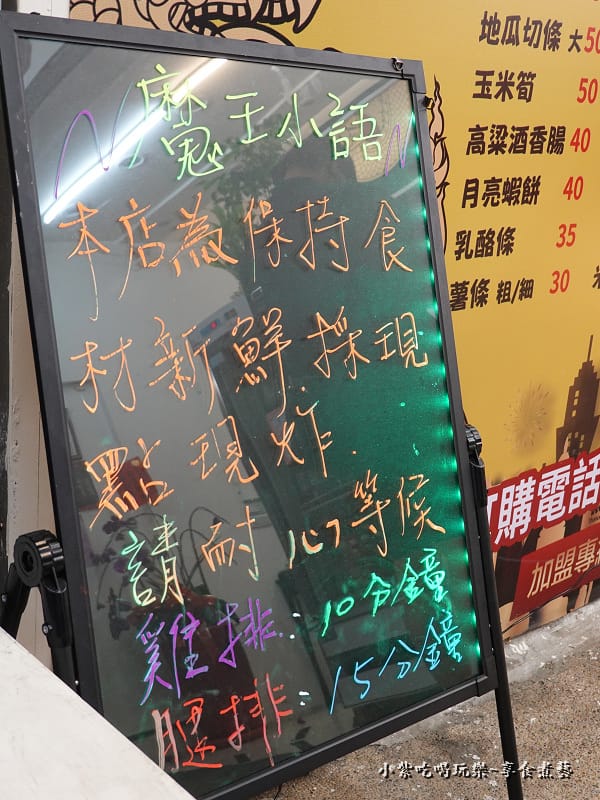 魔王小語
本店為保持食
材新鮮.採現
點現炸.
請耐心等候
雞排:10分鐘
腿排:15分鐘
地瓜切條 大50
玉米筍 50
高粱酒香腸 40
月亮蝦餅 40
乳酪條 35
薯條 粗/細 30
購電話
加盟專
小紫吃喝玩樂-享食煮藝